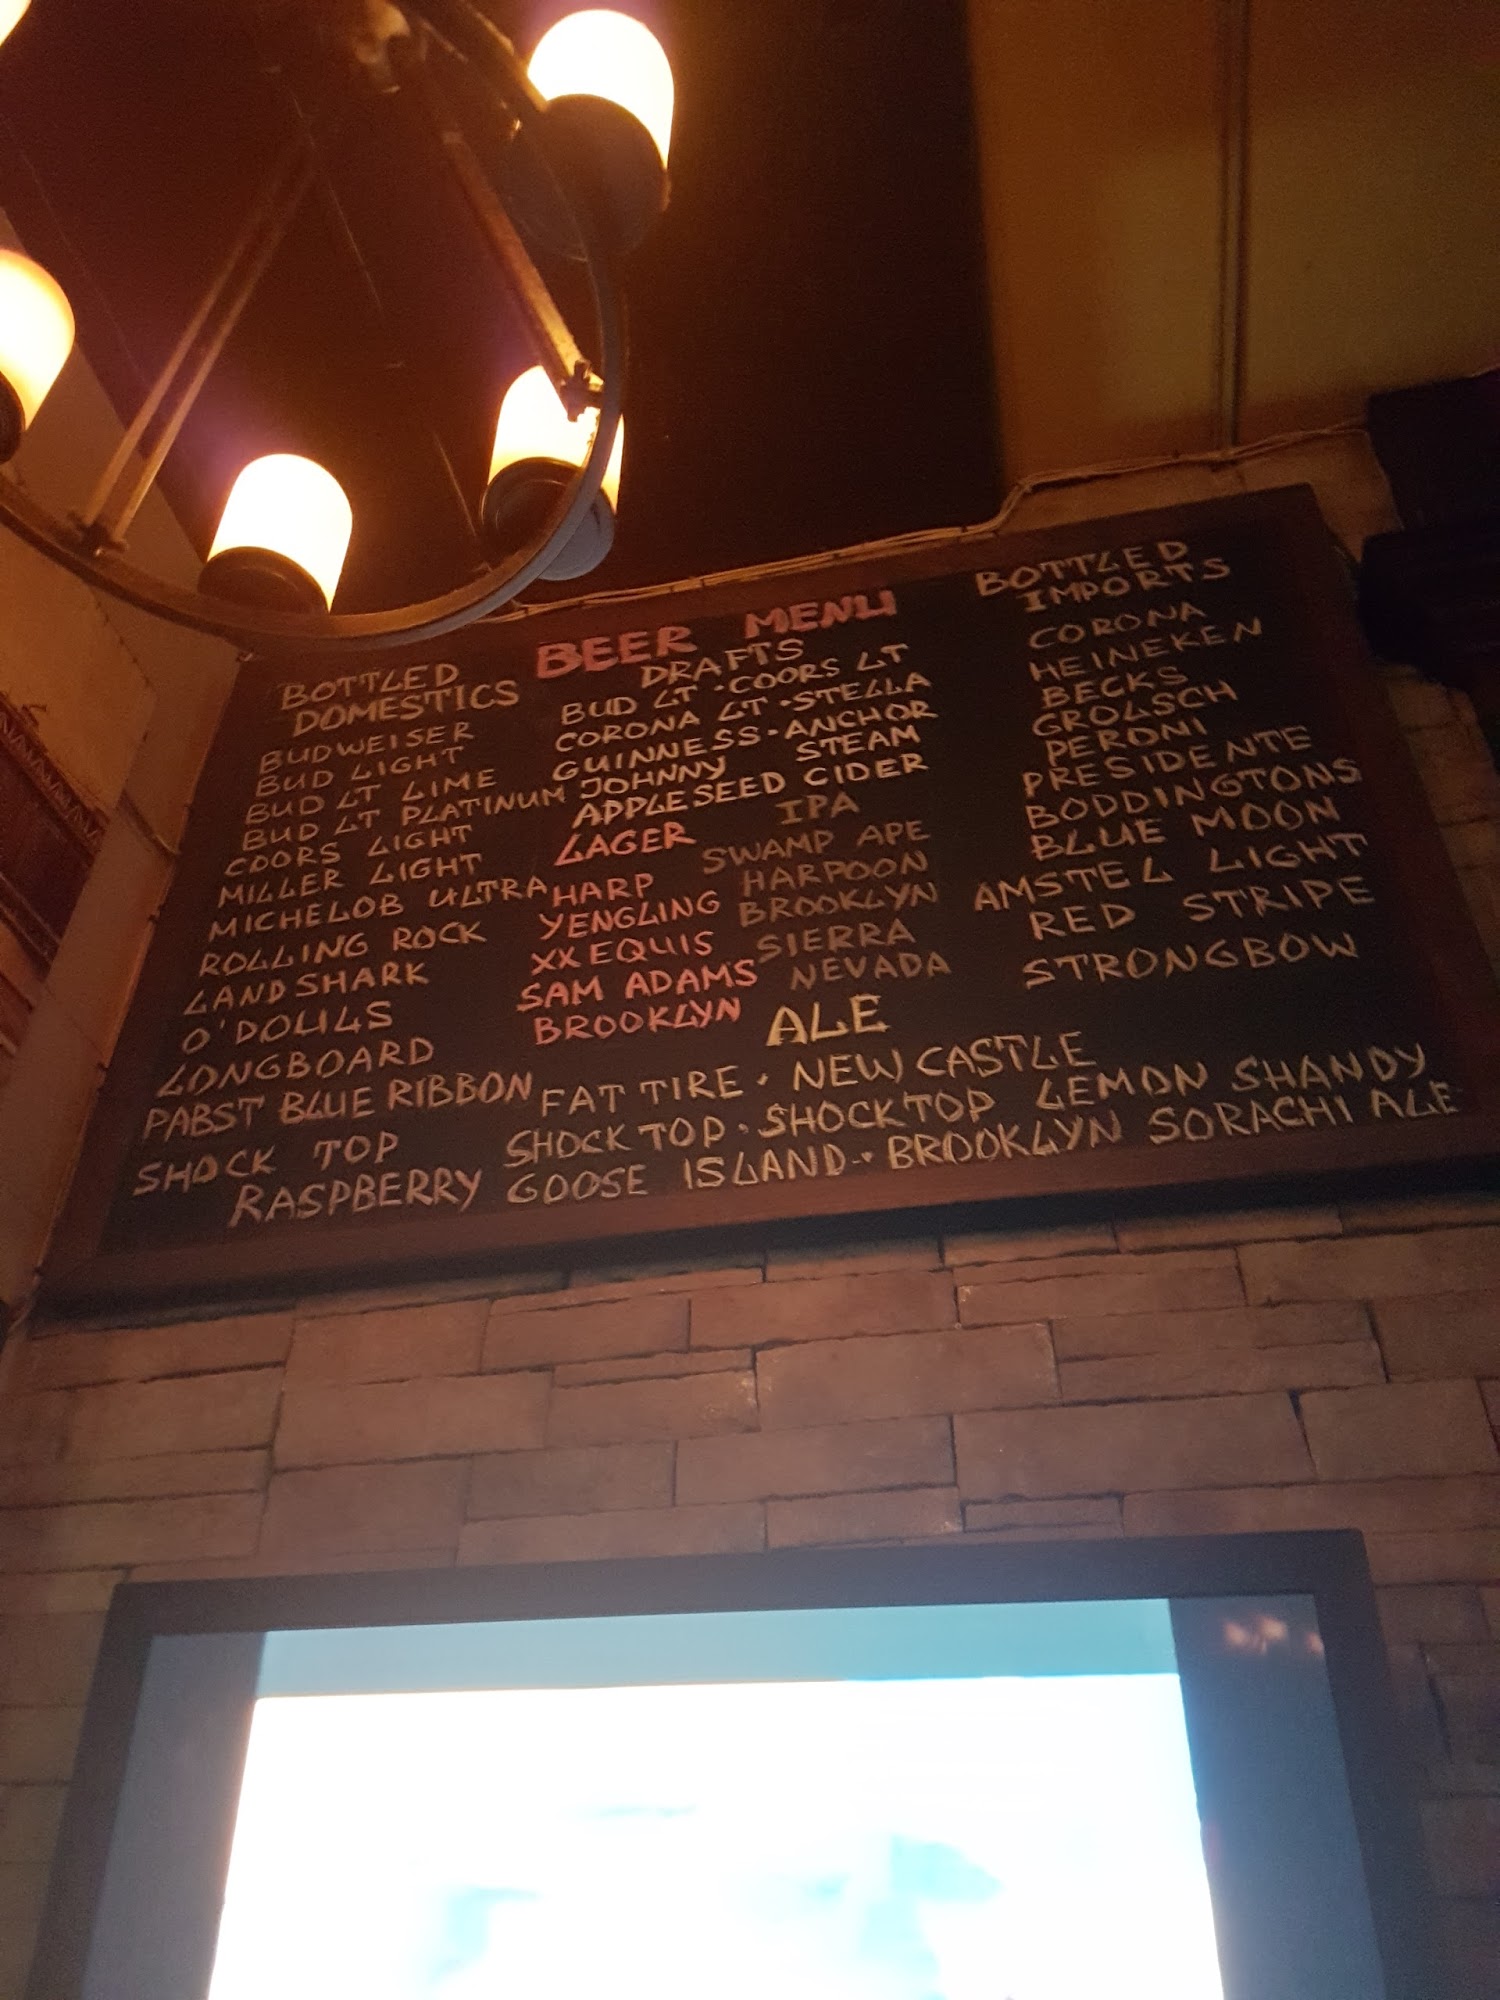 BEER MENU
BOTTLED
DOMESTICS
BUDWEISER
BUD LIGHT
BUD LT LIME
BUD LT PLATINUM
COORS LIGHT
MILLER LIGHT
MICHELOB ULTRA
ROLLING ROCK
LANDSHARK
O'DOULS
LONGBOARD
PABST BLUE RIBBON
SHOCK TOP
RASPBERRY
DRAFTS
BUD LT · COORS LT
CORONA LT · STELLA
GUINNESS - ANCHOR
JOHNNY STEAM
APPLESEED CIDER
LAGER
HARP
YENGLING
XX EQUIS
SAM ADAMS
BROOKLYN
IPA
SWAMP APE
HARPOON
BROOKLYN
SIERRA
NEVADA
ALE
FAT TIRE · NEW CASTLE
SHOCK TOP · SHOCKTOP LEMON SHANDY
GOOSE ISLAND · BROOKLYN SORACHI ALE
BOTTLED
IMPORTS
CORONA
HEINEKEN
BECKS
GROLSCH
PERONI
PRESIDENTE
BODDINGTONS
BLUE MOON
AMSTEL LIGHT
RED STRIPE
STRONGBOW